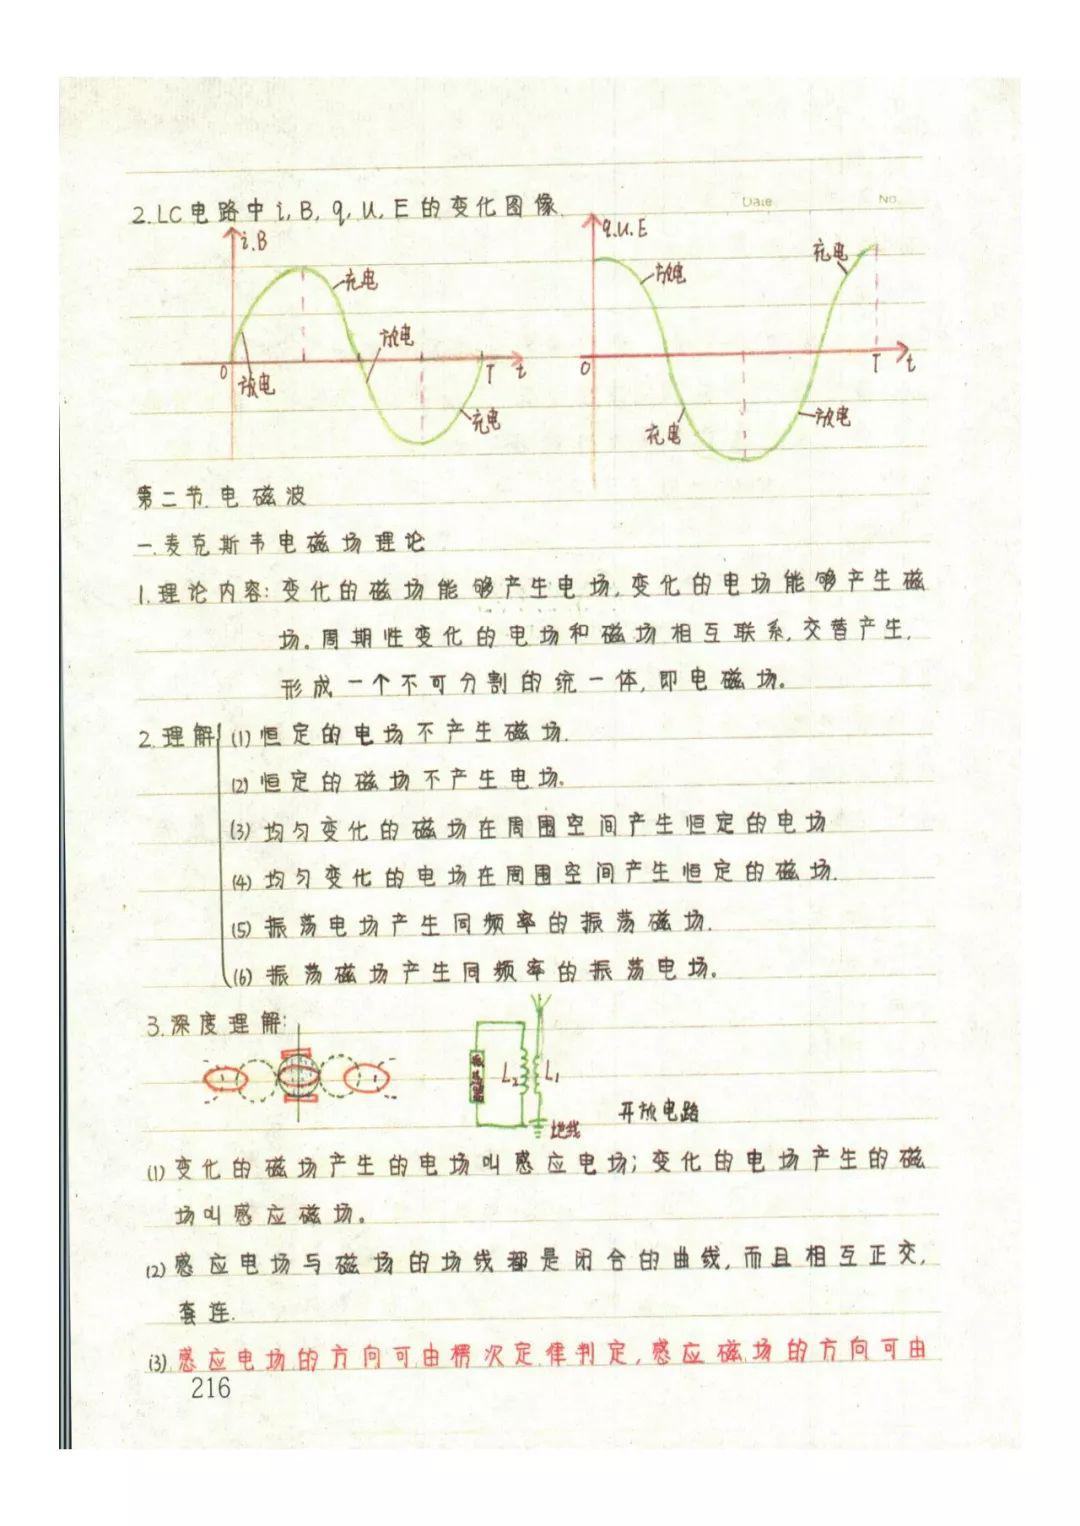 Date No.
2.LC电路中i,B,q,u,E的变化图像.
i.B
q.u.E
充电
放电
充电
放电
O
放电
T
t
充电
O
T
t
充电
放电
第二节.电磁波
一.麦克斯韦电磁场理论
1.理论内容:变化的磁场能够产生电场,变化的电场能够产生磁
场。周期性变化的电场和磁场相互联系,交替产生,
形成一个不可分割的统一体,即电磁场。
2.理解 (1)恒定的电场不产生磁场.
(2)恒定的磁场不产生电场.
(3)均匀变化的磁场在周围空间产生恒定的电场
(4)均匀变化的电场在周围空间产生恒定的磁场.
(5)振荡电场产生同频率的振荡磁场.
(6)振荡磁场产生同频率的振荡电场。
3.深度理解:
L2 L1
地线
开放电路
(1)变化的磁场产生的电场叫感应电场;变化的电场产生的磁
场叫感应磁场。
(2)感应电场与磁场的场线都是闭合的曲线,而且相互正交,
套连.
(3).感应电场的方向可由楞次定律判定,感应磁场的方向可由
216